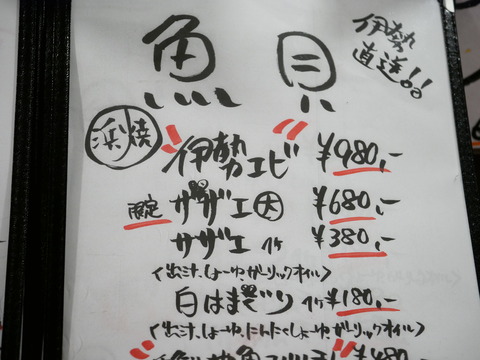 魚貝
伊勢
直送!!
浜焼
伊勢エビ ¥980,-
限定 サザエ 大 ¥680,-
サザエ 1ケ ¥380,-
<出汁、しょーゆ、ガーリックオイル>
白はまぐり 1ケ ¥180,-
<出汁、しょーゆ、にんにくしょーゆ、ガーリックオイル>